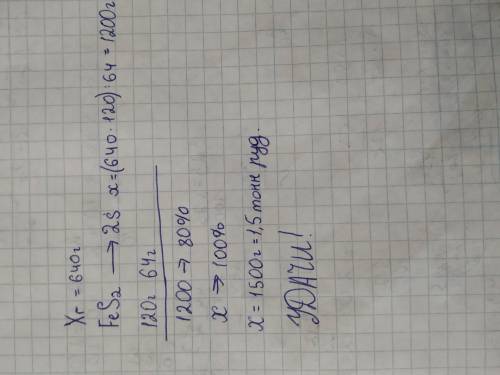 Xг = 640г
FeS₂ → 2S x=(640·120):64=1200г
120г 64г
1200 → 80%
x → 100%
x = 1500г = 1,5 тонн руд.
УДАЧИ!